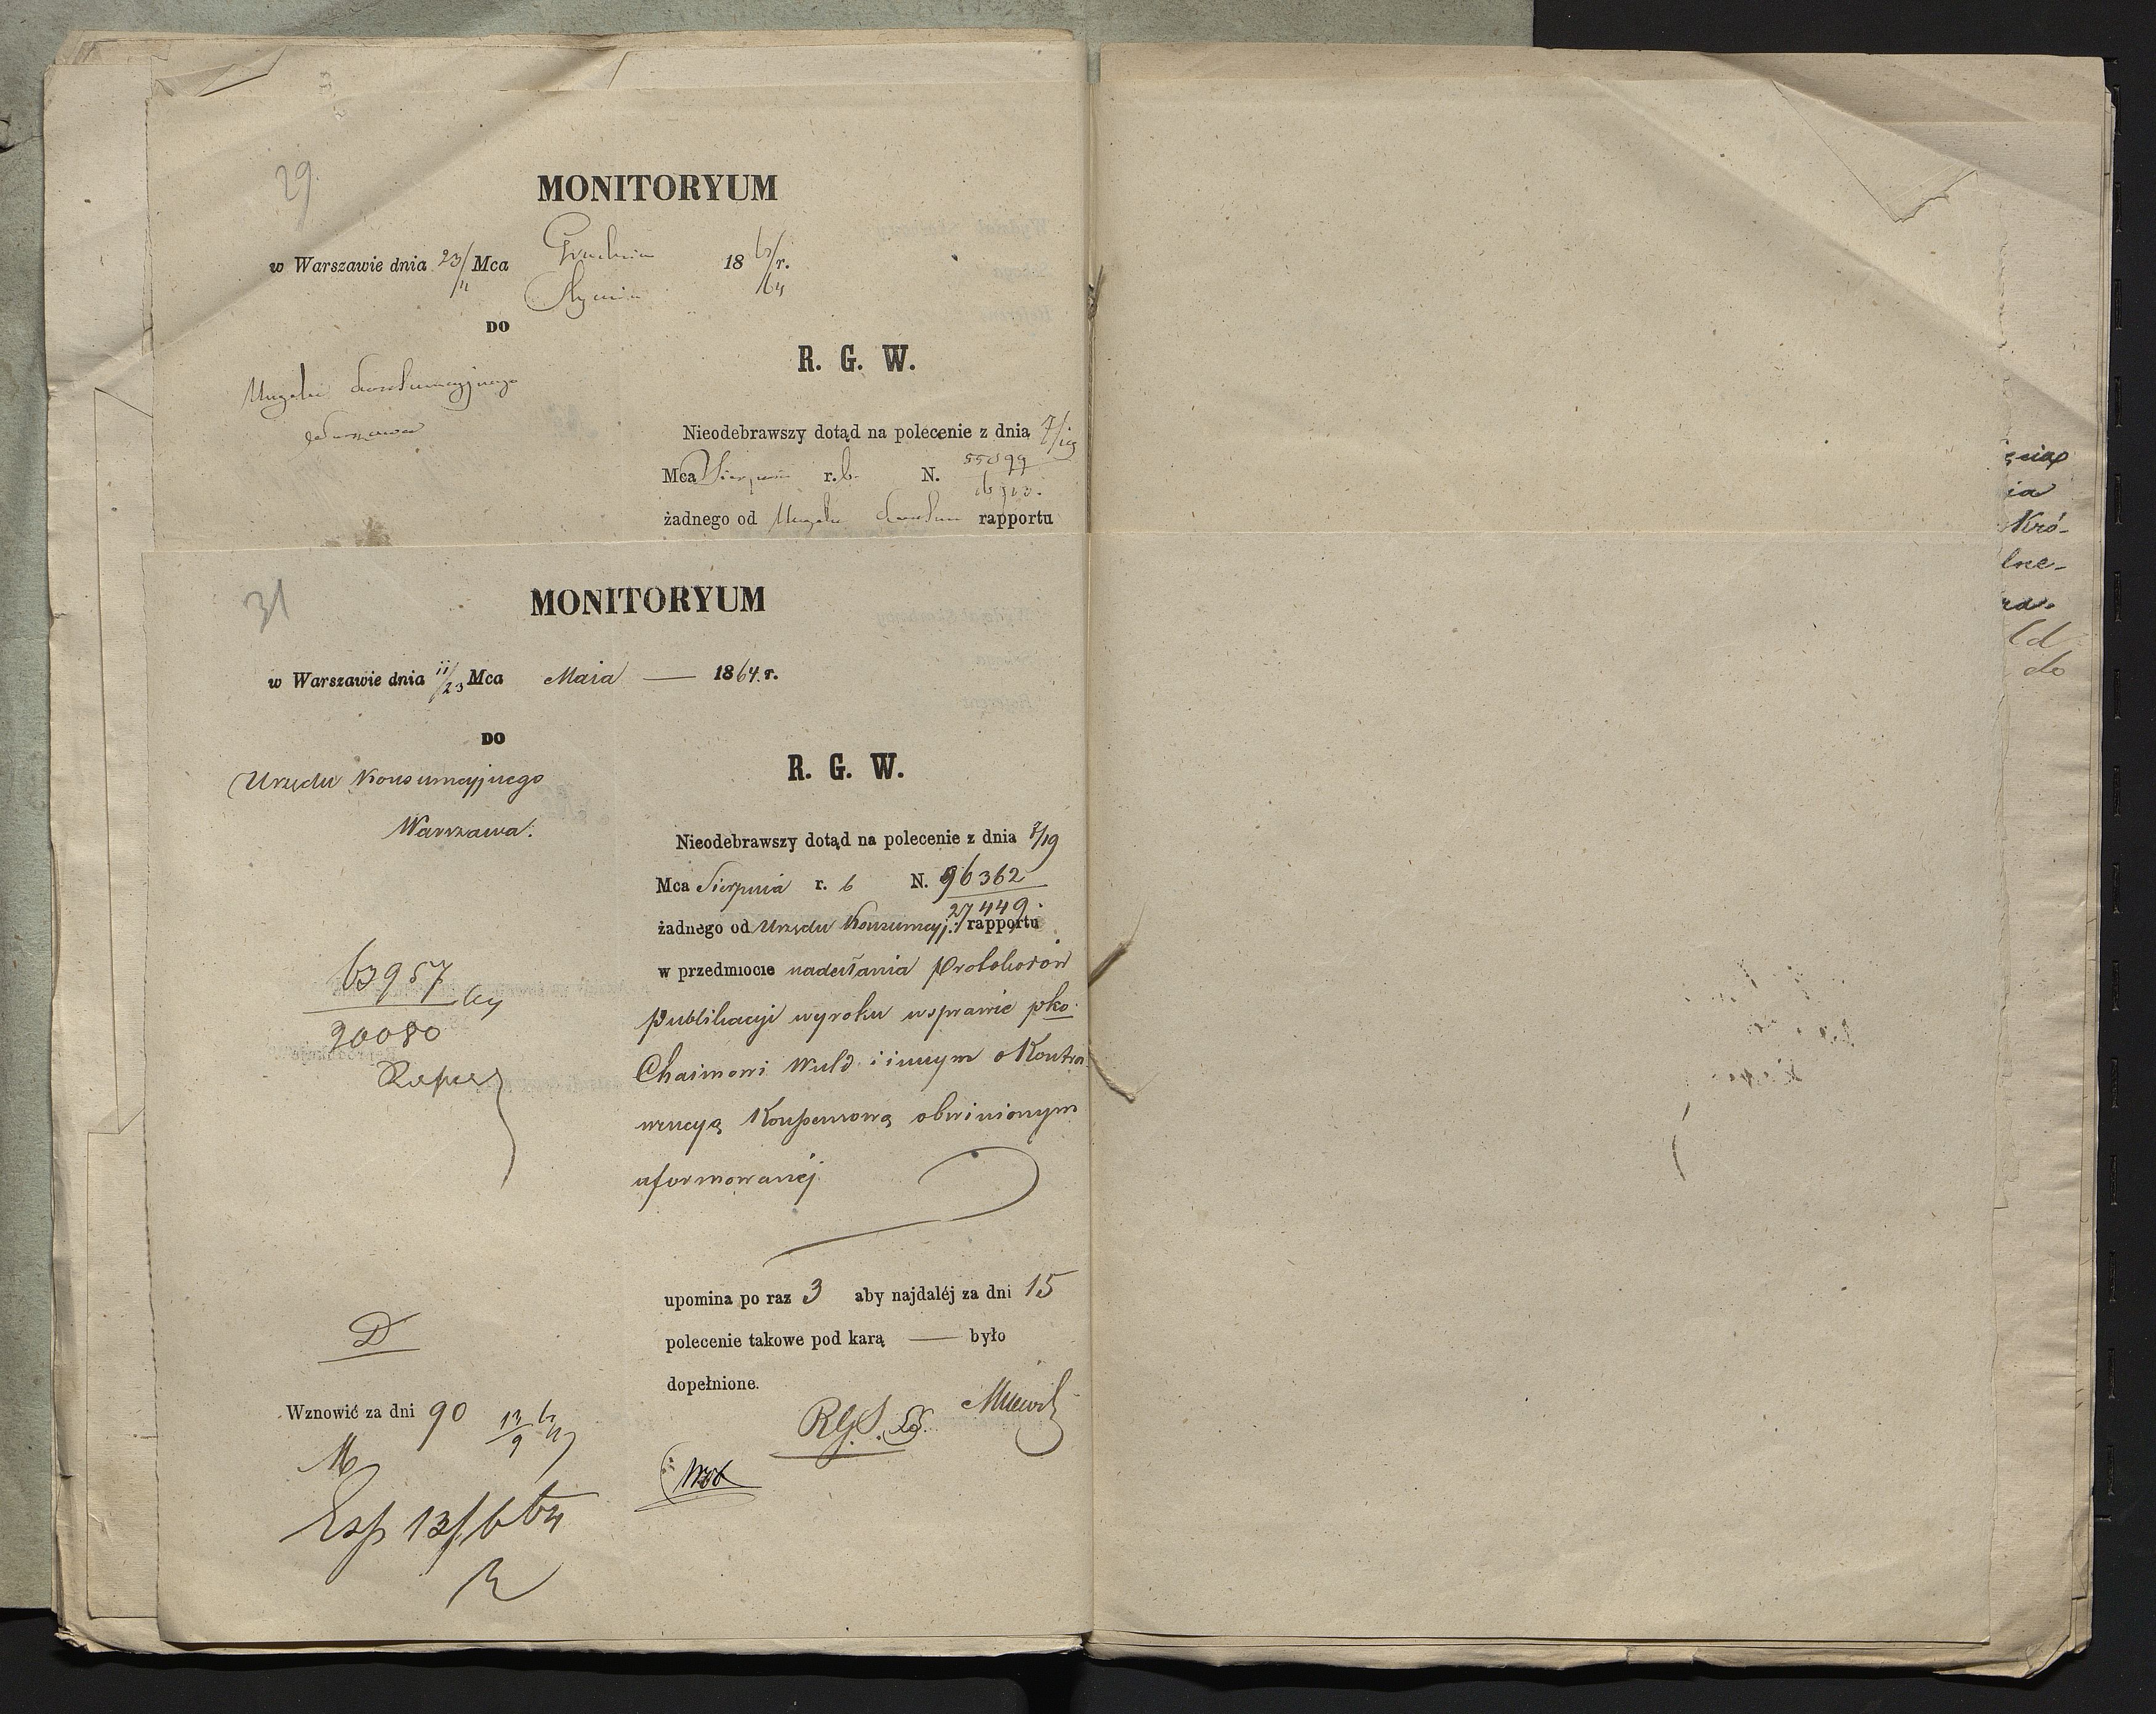 29
MONITORYUM
w Warszawie dnia 23/11 Mca Grudnia 18 63/64 r.
Stycznia
DO
Urzędu Konsumcyjnego
Warszawa
R. G. W.
Nieodebrawszy dotąd na polecenie z dnia 7/19
Mca Sierpnia r. b. N.
żadnego od Urzędu Konsum rapportu
31
MONITORYUM
w Warszawie dnia 11/23 Mca Maia — 1864 r.
DO
Urzędu Konsumcyjnego
Warszawa.
R. G. W.
Nieodebrawszy dotąd na polecenie z dnia 7/19
Mca Sierpnia r. b N. 96362
27449.
żadnego od Urzędu Konsumcyj: rapportu
w przedmiocie nadesłania Protokołów
publikacyi wyroku wsprawie pko.
Chaimowi Wuld i innym o Kontra
wencyą Konsensową obwinionym
uformowanéj
63957
20080
upomina po raz 3 aby najdaléj za dni 15
polecenie takowe pod karą — było
dopełnione.
D
Wznowić za dni 90
13/9 64
Exp 13/6 64
źnią
ia
Kró-
lne-
ra.
do